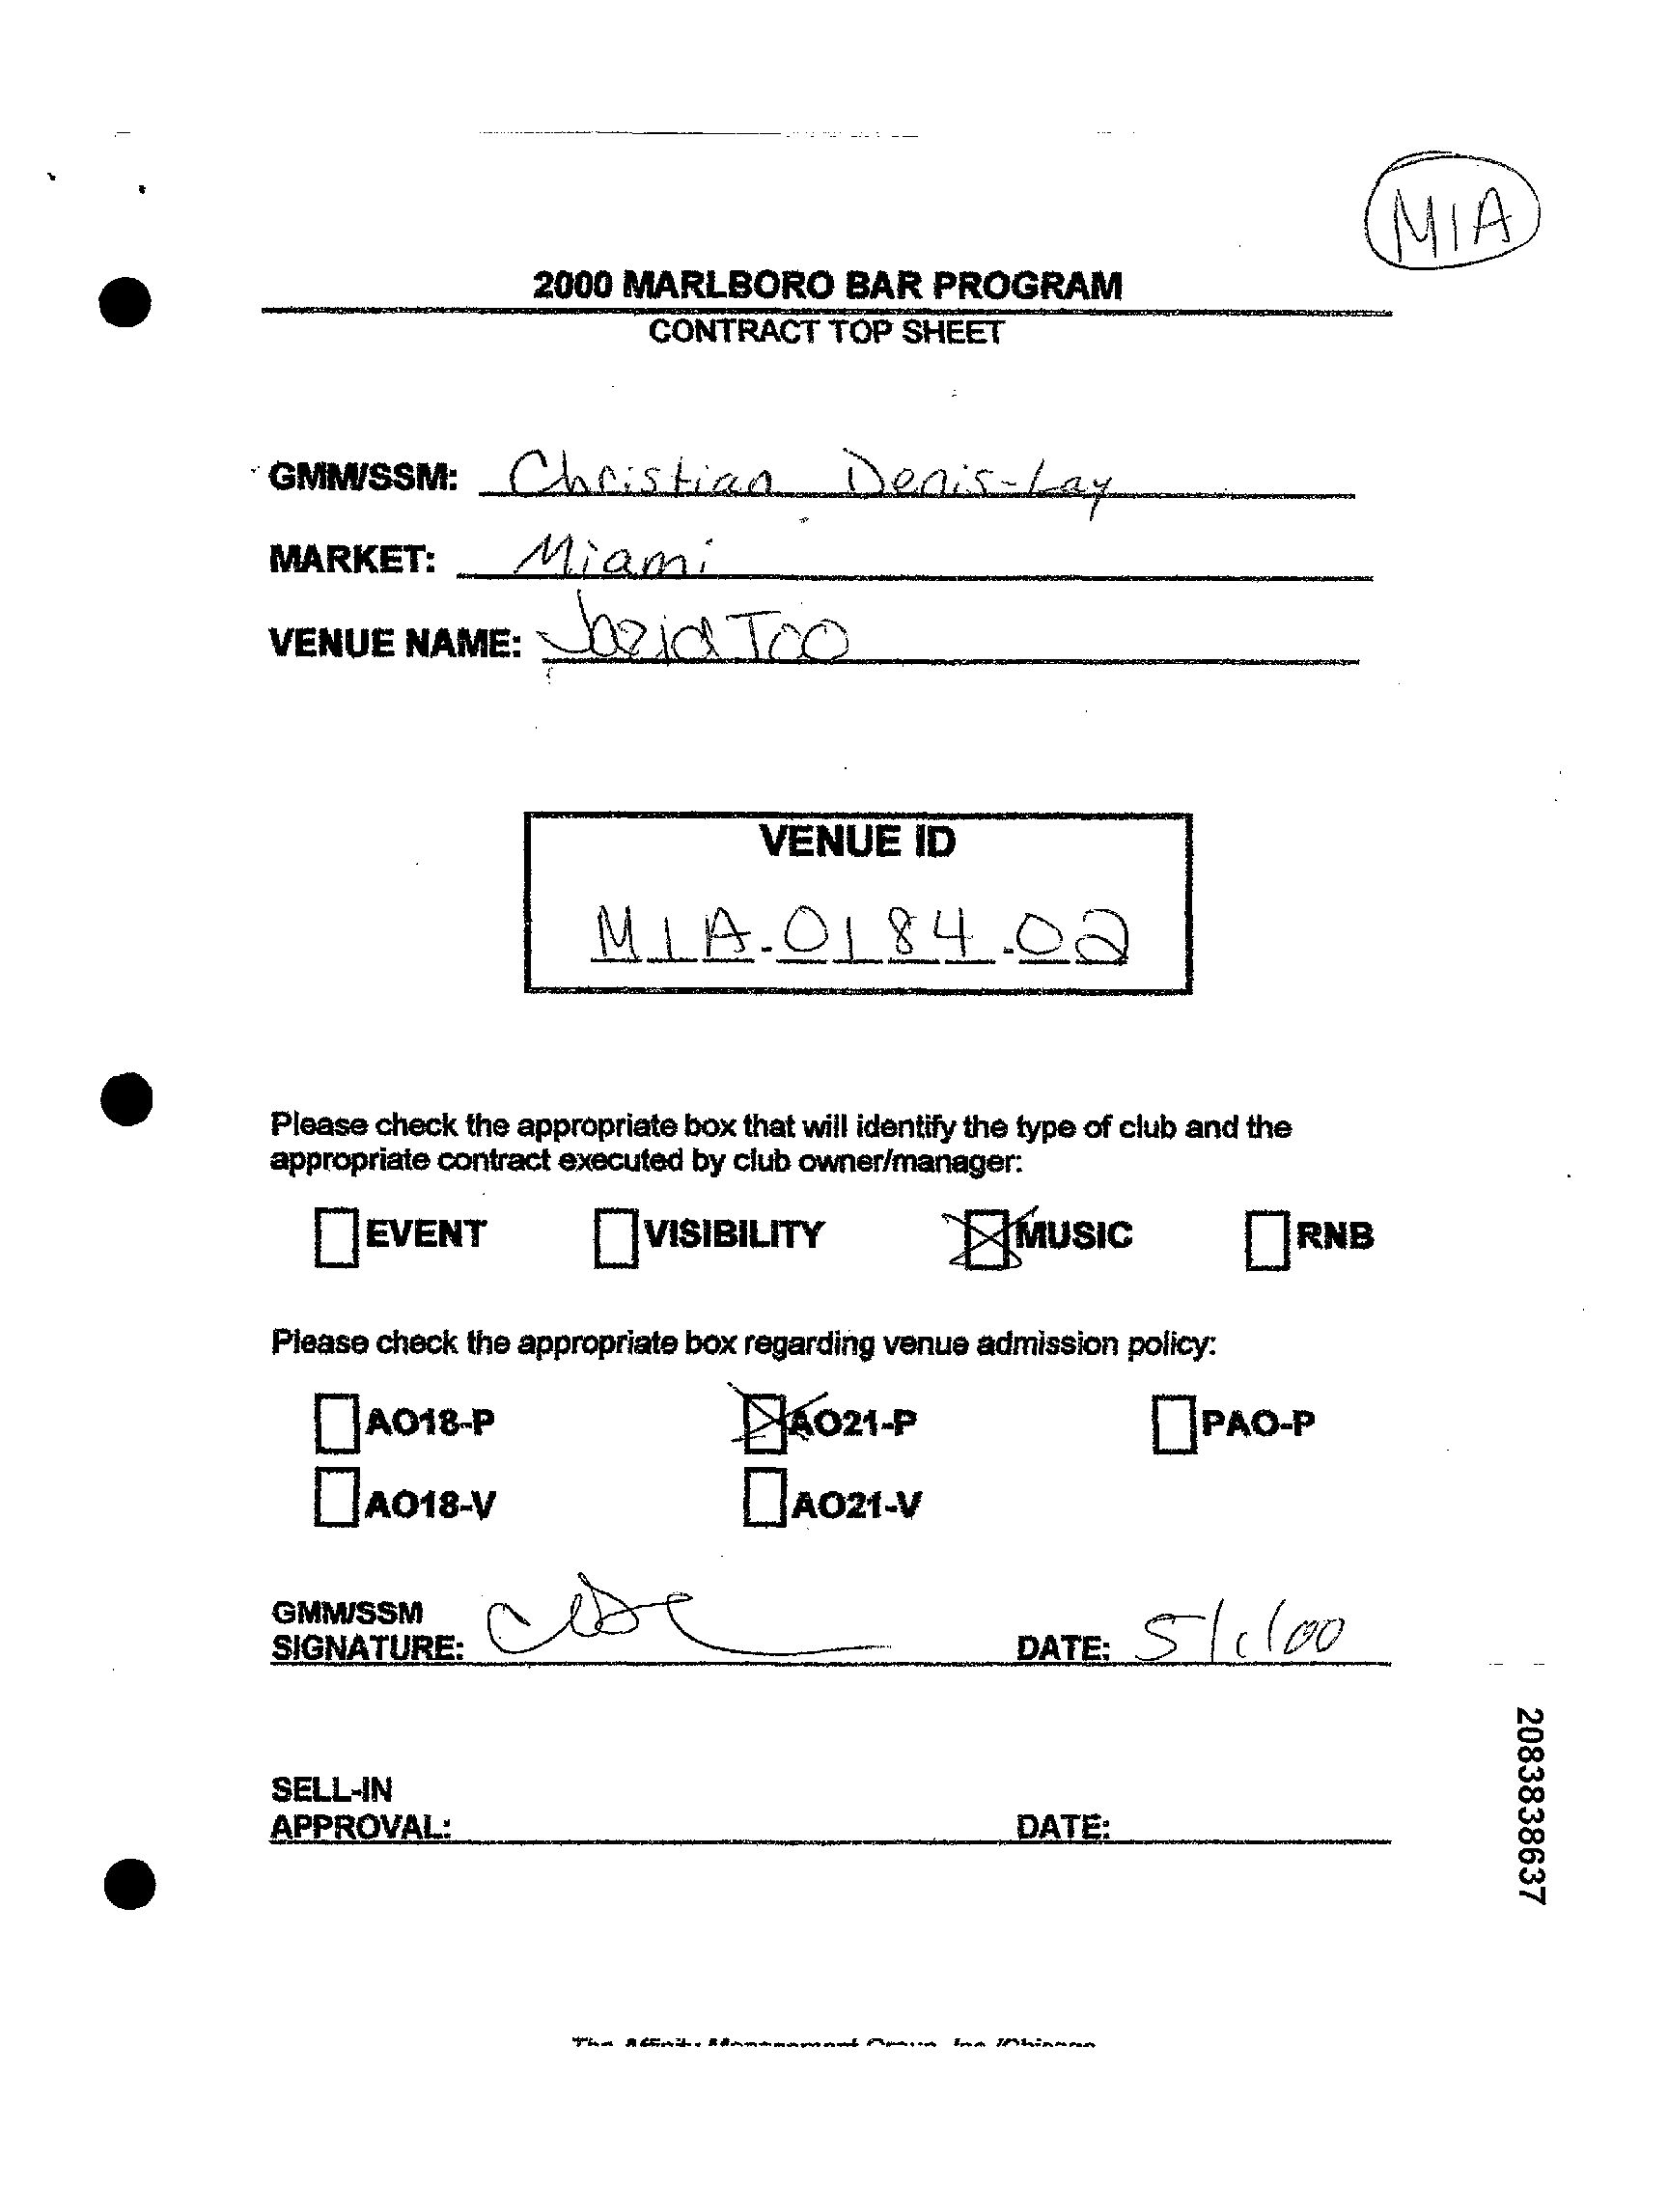 MIA
2000 MARLBORO BAR PROGRAM
CONTRACT TOP SHEET
GMM/SSM: Christian Denis-Lay
MARKET: Miami
VENUE NAME: Jazid Too
VENUE ID
MIA.0184.02
Please check the appropriate box that will identify the type of club and the
appropriate contract executed by club owner/manager:
EVENT VISIBILITY MUSIC RNB
Please check the appropriate box regarding venue admission policy:
AO18-P AO21-P PAO-P
AO18-V AO21-V
GMM/SSM
SIGNATURE: DATE: 5/1/00
SELL-IN
APPROVAL: DATE:
2083838637
The Affinity Management Group, Inc./Chicago